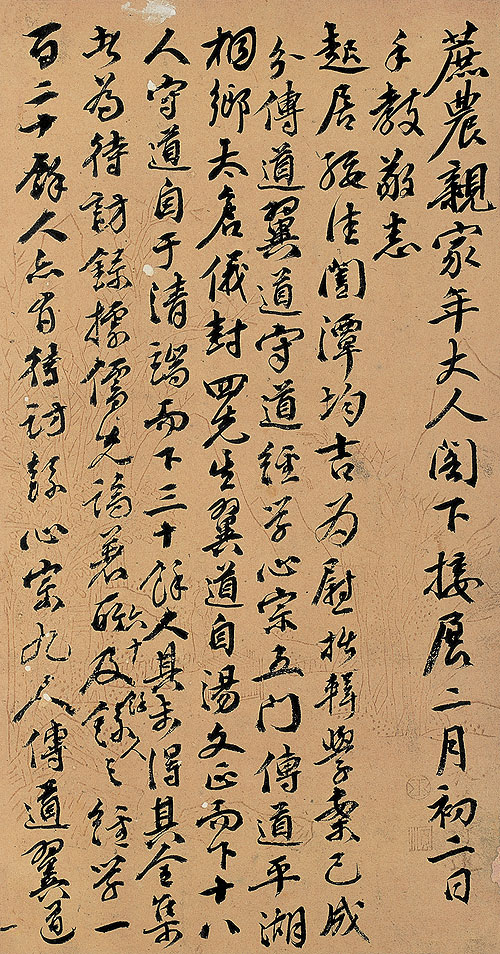 蔗農親家年大人閣下接展二月初二日
手教敬悉
起居綏佳閤潭均吉為慰拙輯學案已成
分傳道翼道守道經学心宗五門傳道平湖
桐鄉太倉儀封四先生翼道自湯文正而下十八
人守道自于清端而下三十餘人其未得其全集
者為待訪錄據儒先論著所及六十餘人錄之經学一
百二十餘人亦有待訪錄心宗九人傳道翼道